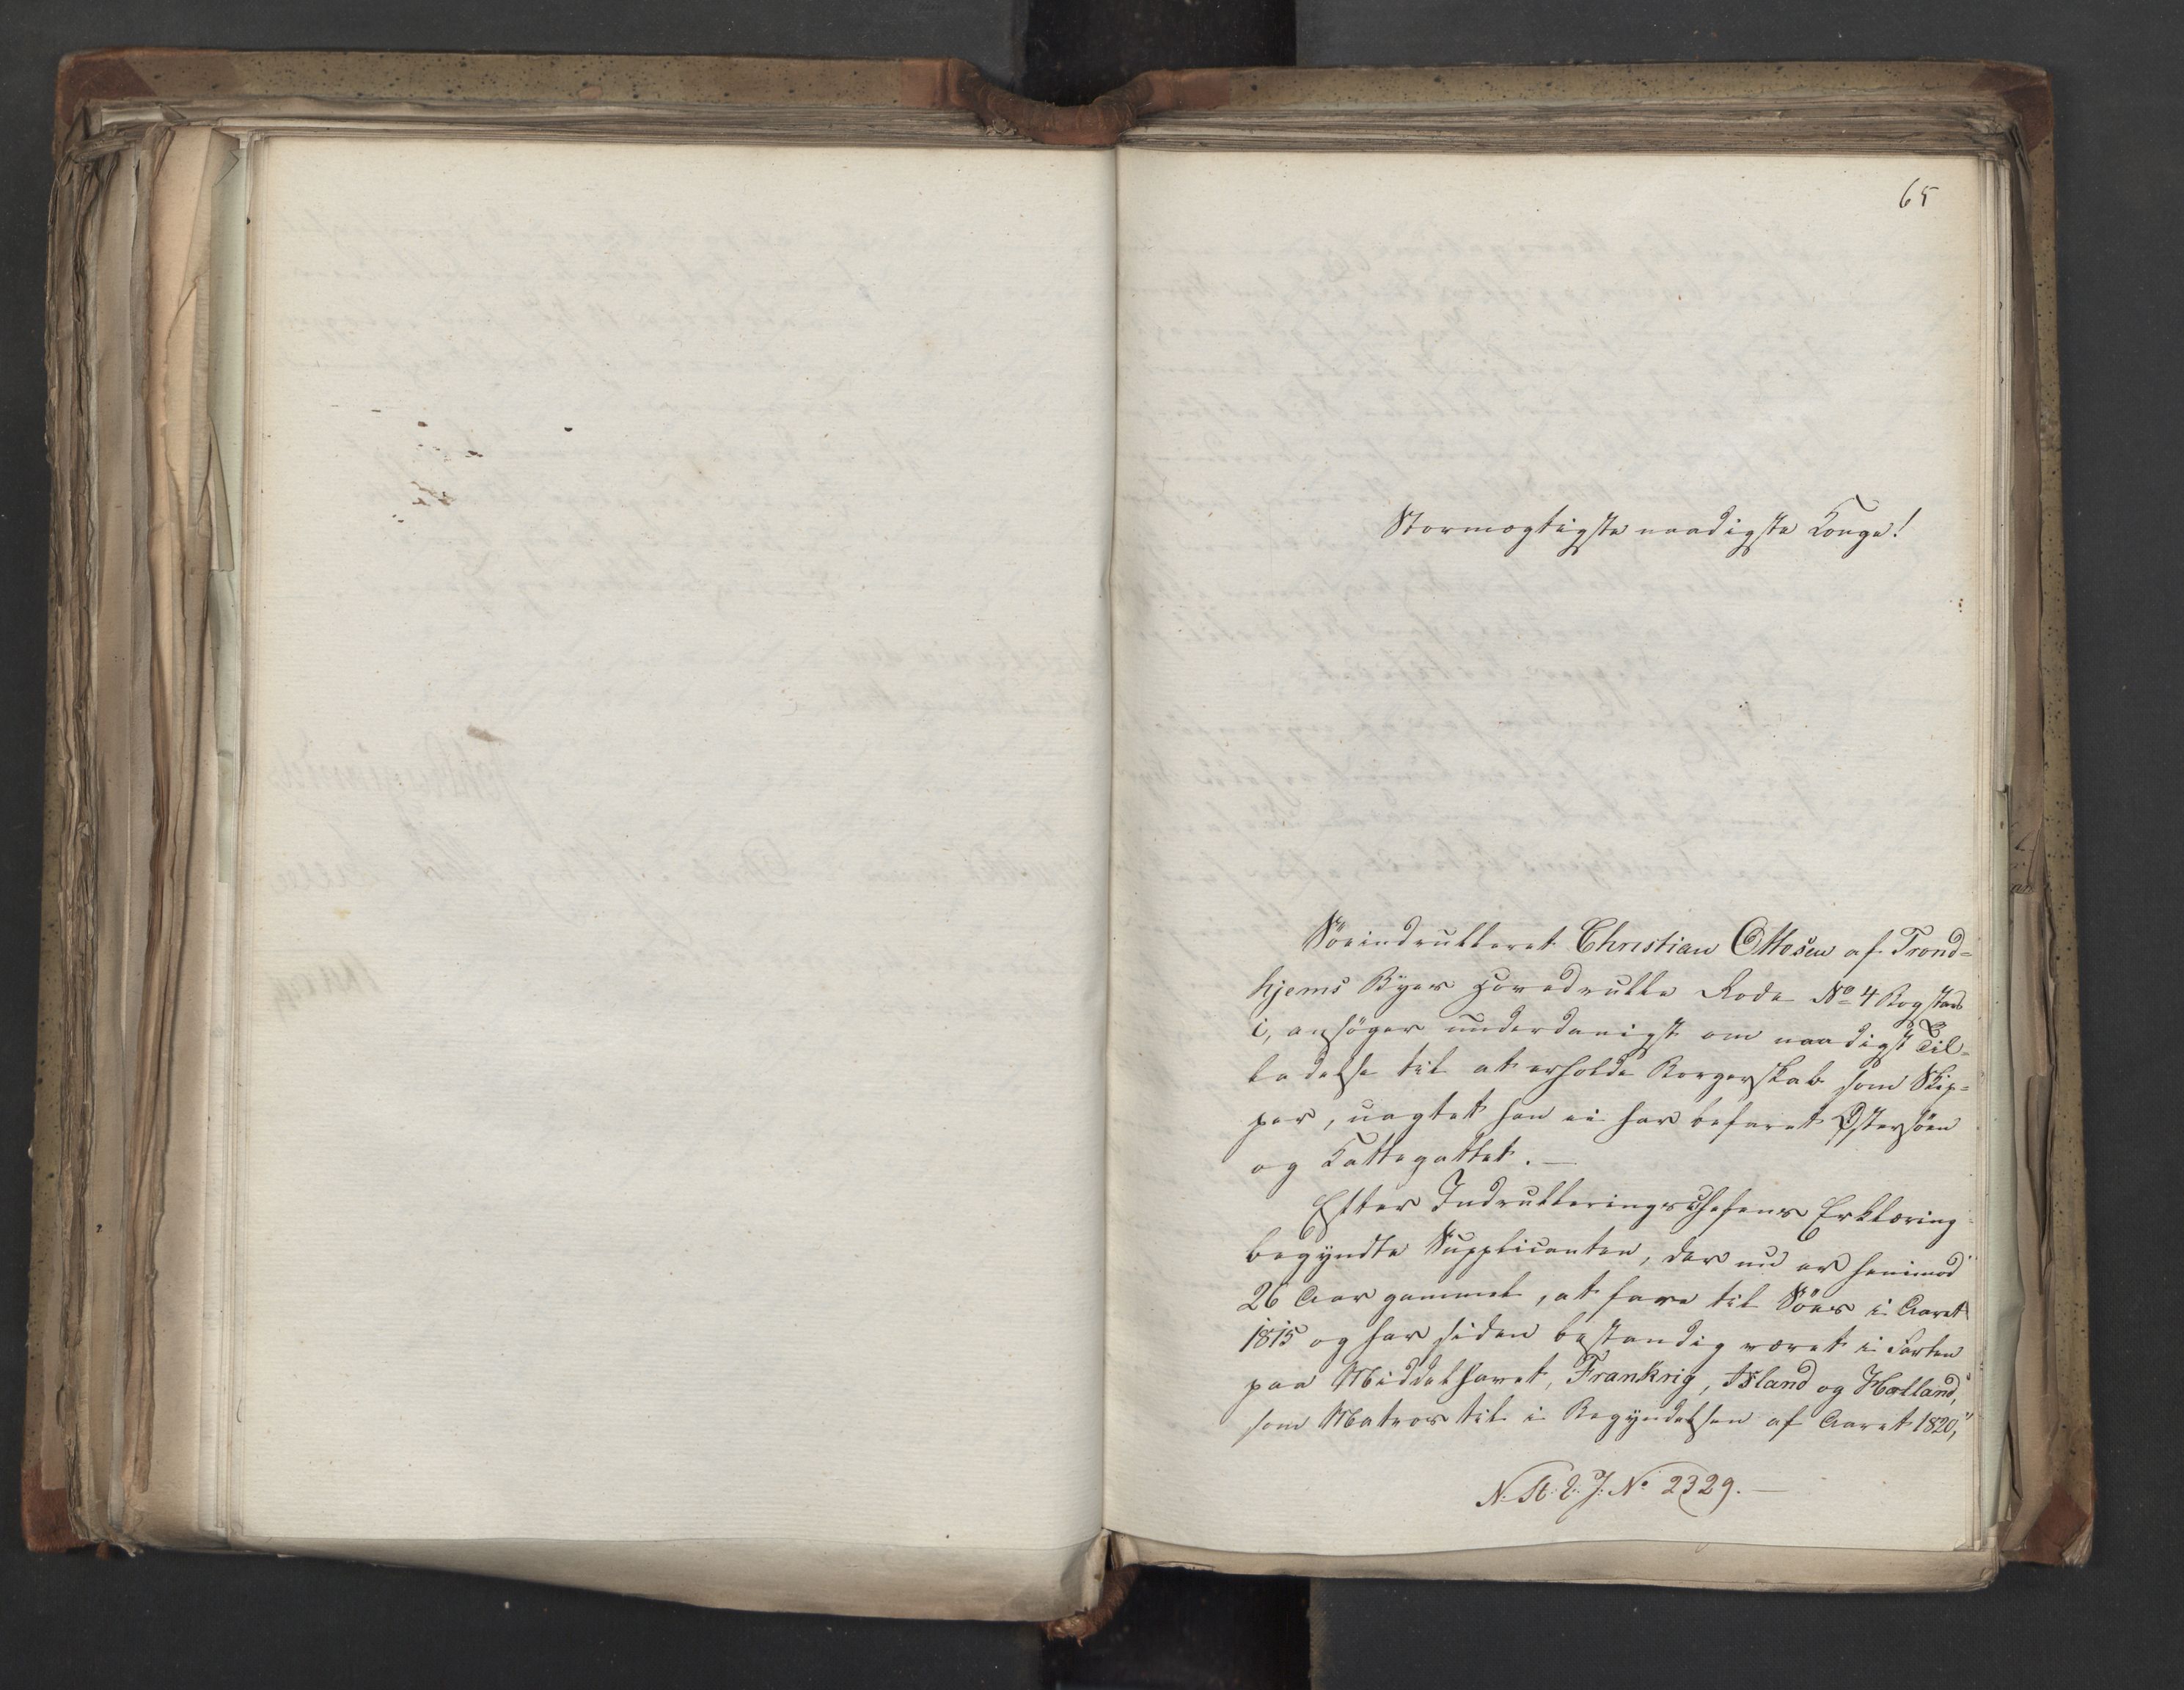 65
Stormægtigste naadigste Konge!
Söeindrulleret Christian Ottosen af Trond=
hjems Byes Hovedrulle Rode No 4 Bogstav
i, ansöger underdanigst om naadigst Til=
ladelse til at erholde Borgerskab som Skip=
per, uagtet han ei har befaret Östersöen
og Kattegattet. —
Efter Indrulleringschefens Erklæring
begyndte Supplicanten, der nu er henimod
26 Aar gammel, at fare til Söes i Aaret
1815 og har siden bestandig været i Farten
paa Middelhavet, Frankrig, Island og Holland,
som Matros til i Begyndelsen af Aaret 1820,
No 2329. —